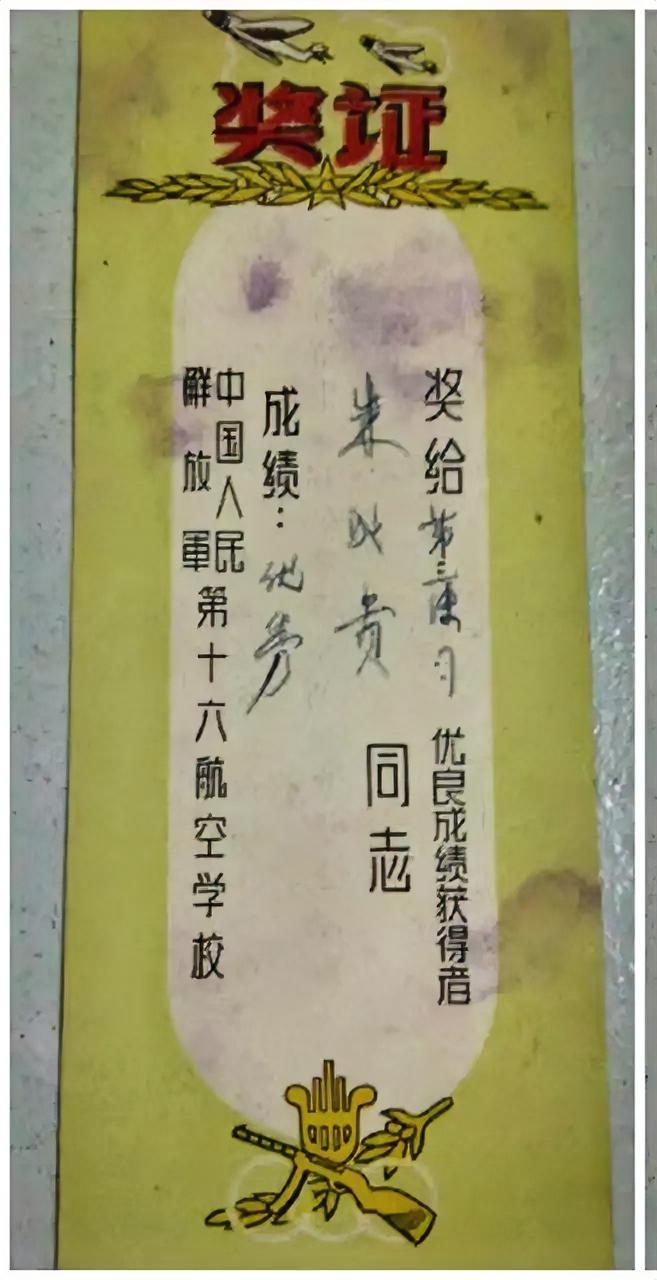 奖证
奖给第三練习优良成绩获得者
朱成贵同志
成绩：优秀
中国人民
解放軍
第十六航空学校